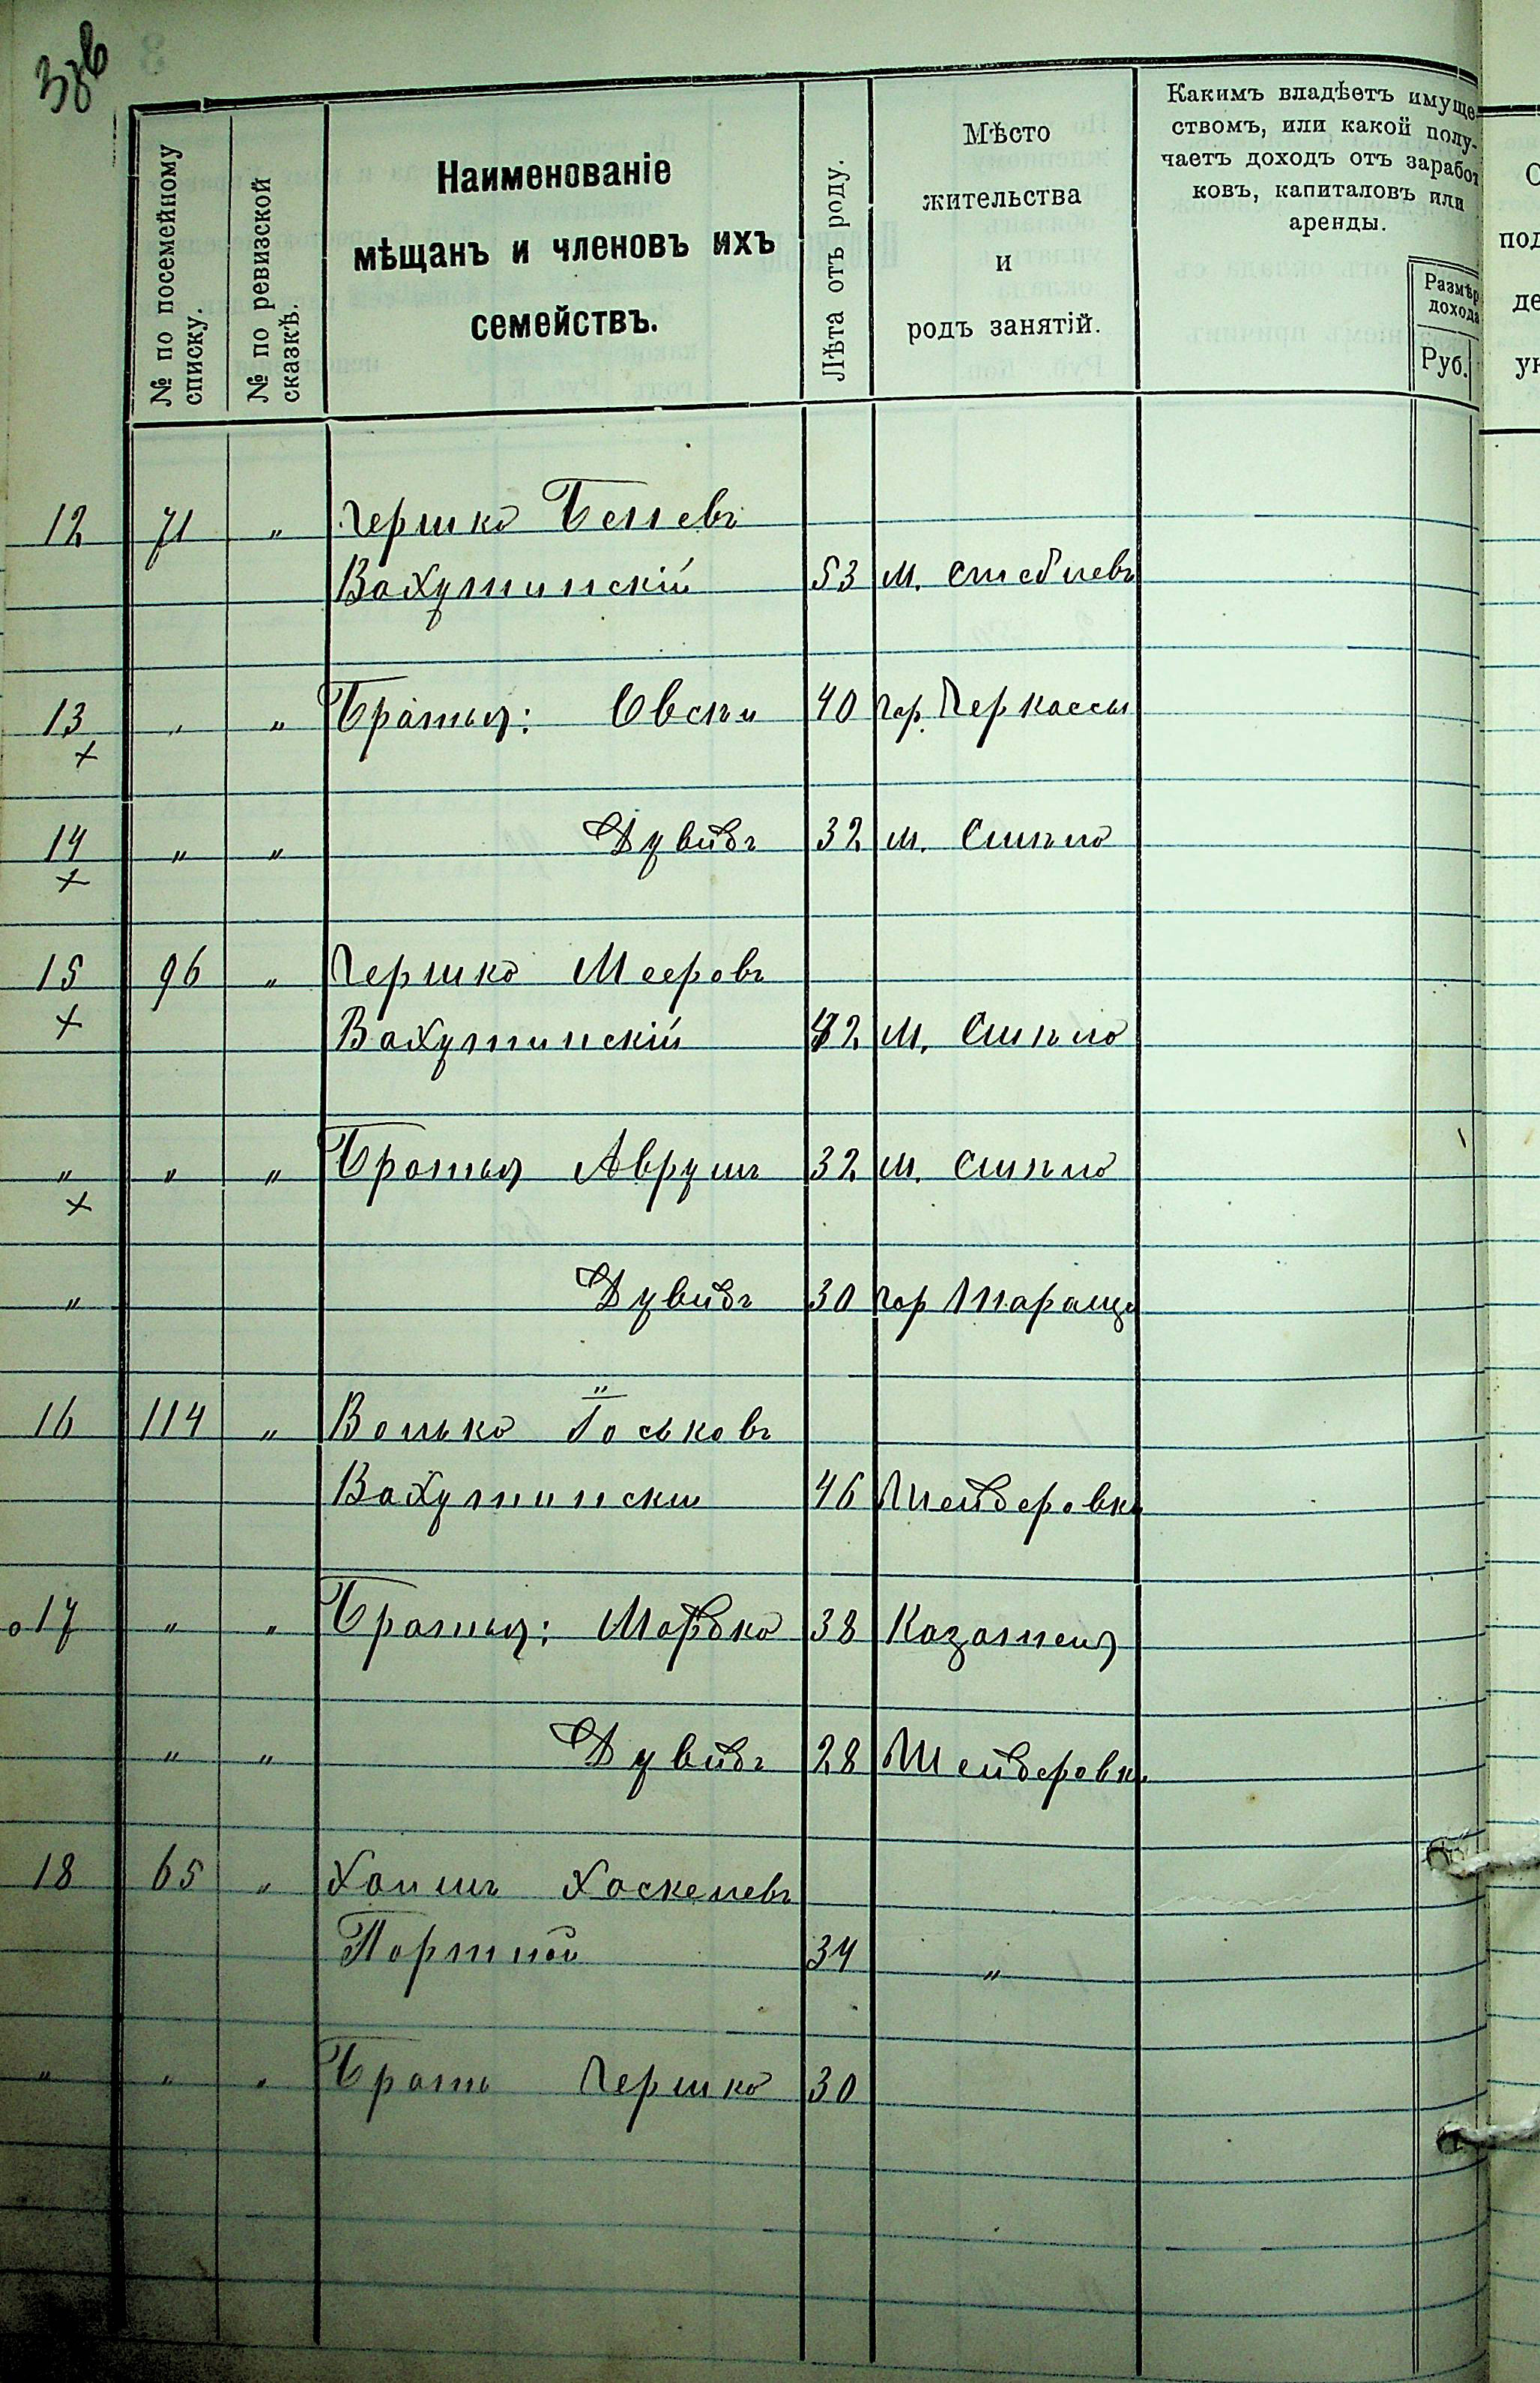 № по посемейному списку.
№ по ревизской сказкѣ.
Наименованіе
мѣщанъ и членовъ ихъ
семействъ.
Лѣта отъ роду.
Мѣсто
жительства
и
родъ занятій.
Какимъ владѣетъ имуще-
ствомъ, или какой полу-
чаетъ доходъ отъ заработ
ковъ, капиталовъ или
аренды.
Размѣр
дохода
Руб.
12 71 " Гершко Беневъ
Вахутинскій 53 м. Стеблевъ
13 " " Братья: Овсѣй 40 гор. Черкассы
×
14 " " Дувидъ 32 м. Смѣла
×
15 96 " Гершко Мееровъ
× Вахутинскій 42 м. Смѣла
" " " Братья Аврумъ 32 м. Смѣла
×
" Дувидъ 30 гор Тараща
16 114 " Волько Іоськовъ
Вахутински 46 Шендеровка
17 " " Братья: Мордко 38 Казатень
" " Дувидъ 28 Шендеровка
18 65 " Хаимъ Хаскелевъ
Портной 34 "
" " " Братъ Гершко 30